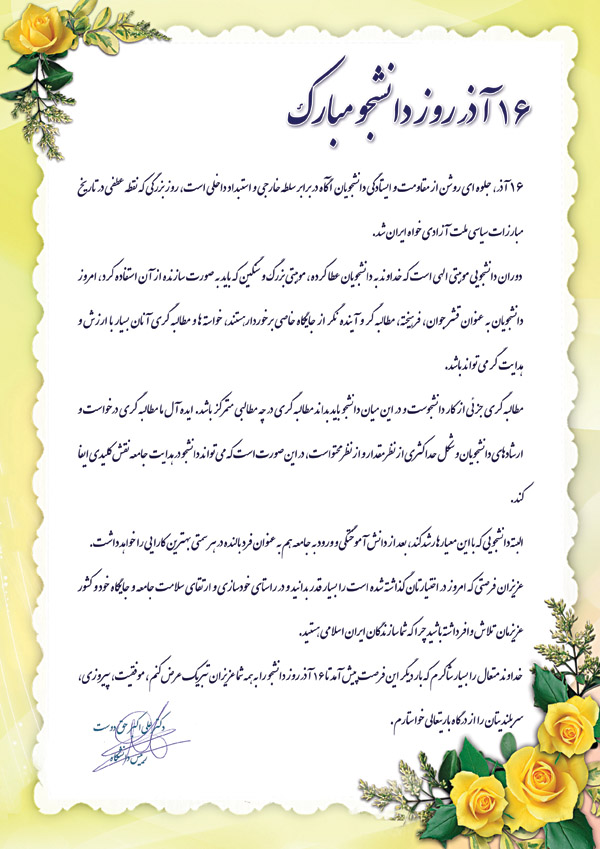 ۱۶ آذر روز دانشجو مبارک
۱۶ آذر، جلوه ای روشن از مقاومت و ایستادگی دانشجویان آگاه در برابر سلطه خارجی و استبداد داخلی است، روز بزرگی که نقطه عطفی در تاریخ
مبارزات سیاسی ملت آزادی خواه ایران شد.
دوران دانشجویی موهبتی الهی است که خداوند به دانشجویان عطا کرده، موهبتی بزرگ و سنگین که باید به صورت سازنده از آن استفاده کرد، امروز
دانشجویان به عنوان قشر جوان، فرهیخته، مطالبه گر و آینده نگر از جایگاه خاصی برخوردار هستند، خواسته ها و مطالبه گری آنان بسیار با ارزش و
هدایت گر می تواند باشد.
مطالبه گری جزئی از کار دانشجوست و در این میان دانشجو باید بداند مطالبه گری در چه مطالبی متمرکز باشد. ایده آل ما مطالبه گری درخواست و
ارشادهای دانشجویان و تشکل حداکثری از نظر مقدار و از نظر محتواست، در این صورت است که می تواند دانشجو در هدایت جامعه نقش کلیدی ایفا
کند.
البته دانشجویی که با این معیارها رشد کند، بعد از دانش آموختگی و ورود به جامعه هم به عنوان فرد بالنده در هر سمتی بهترین کارایی را خواهد داشت.
عزیزان فرصتی که امروز در اختیارتان گذاشته شده است را بسیار قدر بدانید و در راستای خودسازی و ارتقای سلامت جامعه و جایگاه خود و کشور
عزیزمان تلاش وافر داشته باشید چرا که شما سازندگان ایران اسلامی هستید.
خداوند متعال را بسیار شاکرم که بار دیگر این فرصت پیش آمد تا ۱۶ آذر روز دانشجو را به همه شما عزیزان تبریک عرض کنم، موفقیت، پیروزی،
سربلندیتان را از درگاه باریتعالی خواستارم.
دکتر علی اکبر حق دوست
رییس دانشگاه